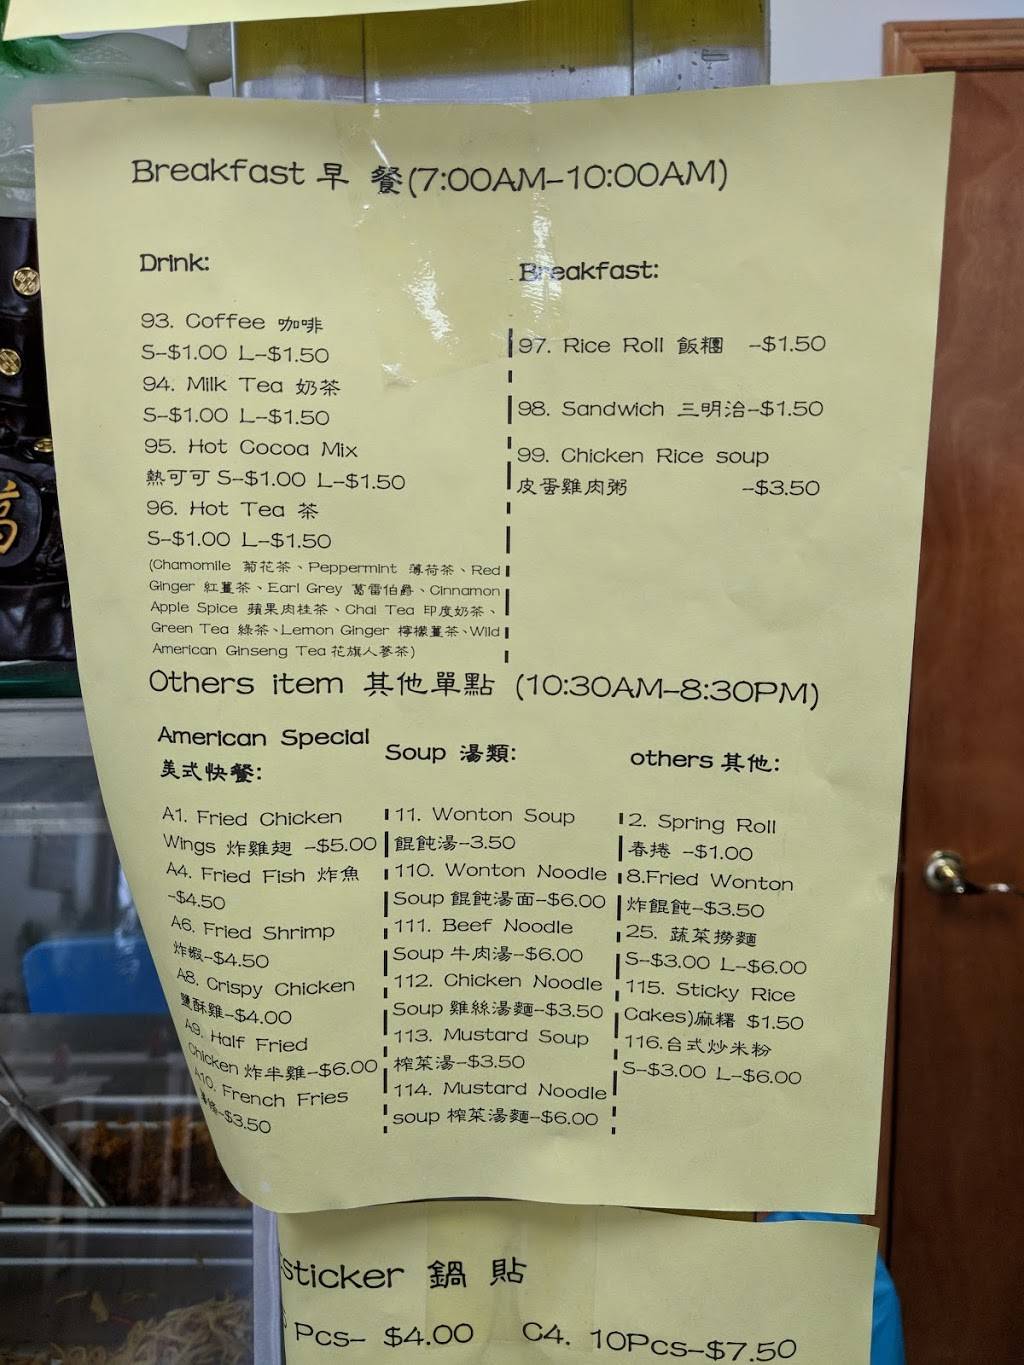 Breakfast 早 餐(7:00AM-10:00AM)
Drink:
93. Coffee 咖啡
S-$1.00 L-$1.50
94. Milk Tea 奶茶
S-$1.00 L-$1.50
95. Hot Cocoa Mix
熱可可 S-$1.00 L-$1.50
96. Hot Tea 茶
S-$1.00 L-$1.50
(Chamomile 菊花茶、Peppermint 薄荷茶、Red
Ginger 紅薑茶、Earl Grey 葛雷伯爵、Cinnamon
Apple Spice 蘋果肉桂茶、Chai Tea 印度奶茶、
Green Tea 綠茶、Lemon Ginger 檸檬薑茶、Wild
American Ginseng Tea 花旗人蔘茶)
Breakfast:
97. Rice Roll 飯糰 -$1.50
98. Sandwich 三明治-$1.50
99. Chicken Rice soup
皮蛋雞肉粥 -$3.50
Others item 其他單點 (10:30AM-8:30PM)
American Special
美式快餐:
A1. Fried Chicken
Wings 炸雞翅 -$5.00
A4. Fried Fish 炸魚
-$4.50
A6. Fried Shrimp
炸蝦-$4.50
A8. Crispy Chicken
鹽酥雞-$4.00
A9. Half Fried
Chicken 炸半雞-$6.00
A10. French Fries
-$3.50
Soup 湯類:
11. Wonton Soup
餛飩湯-3.50
110. Wonton Noodle
Soup 餛飩湯面-$6.00
111. Beef Noodle
Soup 牛肉湯-$6.00
112. Chicken Noodle
Soup 雞絲湯麵-$3.50
113. Mustard Soup
榨菜湯-$3.50
114. Mustard Noodle
soup 榨菜湯麵-$6.00
others 其他:
2. Spring Roll
春捲 -$1.00
8.Fried Wonton
炸餛飩-$3.50
25. 蔬菜撈麵
S-$3.00 L-$6.00
115. Sticky Rice
Cakes)麻糬 $1.50
116.台式炒米粉
S-$3.00 L-$6.00
sticker 鍋 貼
Pcs- $4.00 C4. 10Pcs-$7.50